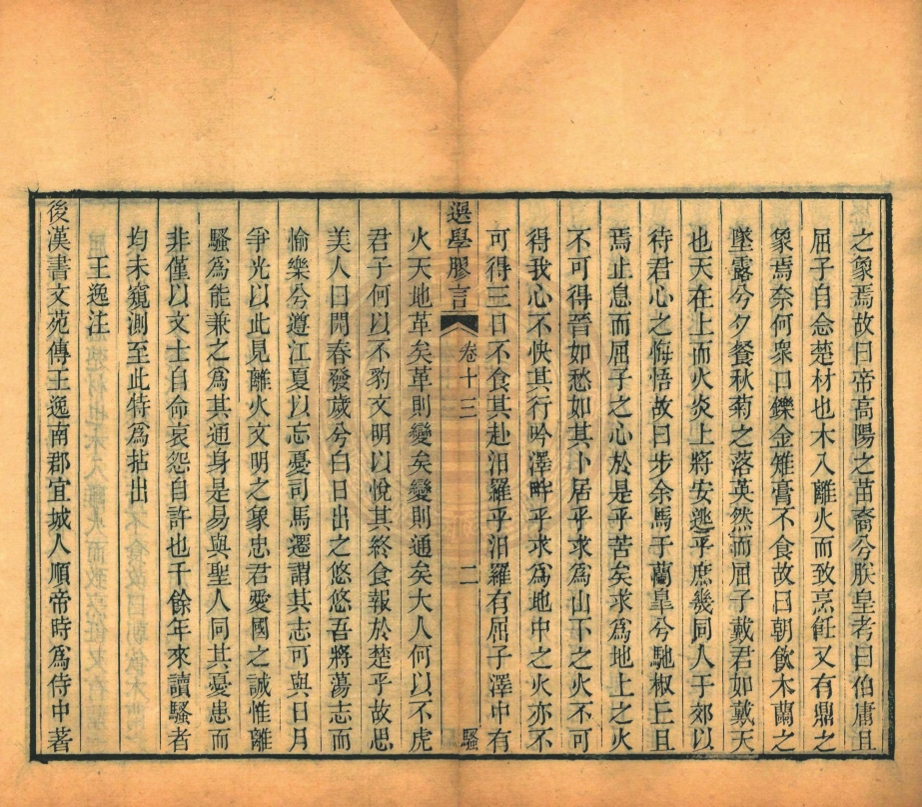 之象焉故曰帝高陽之苗裔兮朕皇考曰伯庸且
屈子自念楚材也木入離火而致烹飪又有鼎之
象焉奈何衆口鑠金雉膏不食故曰朝飲木蘭之
墜露兮夕餐秋菊之落英然而屈子戴君如戴天
也天在上而火炎上將安逃乎庶幾同人于郊以
待君心之悔悟故曰步余馬于蘭皐兮馳椒丘且
焉止息而屈子之心於是乎苦矣求爲地上之火
不可得晉如愁如其卜居乎求爲山下之火不可
得我心不快其行吟澤畔乎求爲地中之火亦不
可得三日不食其赴汨羅乎汨羅有屈子澤中有
選學膠言 卷十三 二 騷
火天地革矣革則變矣變則通矣大人何以不虎
君子何以不豹文明以悅其終食報於楚乎故思
美人曰開春發歲兮白日出之悠悠吾將蕩志而
愉樂兮遵江夏以忘憂司馬遷謂其志可與日月
爭光以此見離火文明之象忠君愛國之誠惟離
騷爲能兼之爲其通身是易與聖人同其憂患而
非僅以文士自命哀怨自許也千餘年來讀騷者
均未窺測至此特爲拈出
王逸注
後漢書文苑傳王逸南郡宜城人順帝時爲侍中著